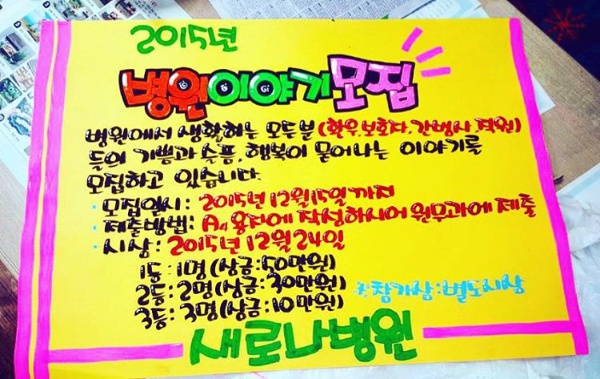 2015년
병원이야기모집
병원에서 생활하는 모든분(환우,보호자,간병사,직원)
들의 기쁨과 슬픔, 행복이 묻어나는 이야기를
모집하고 있습니다.
· 모집일시: 2015년 12월 15일 까지
· 제출방법: A4용지에 작성하시어 원무과에 제출
· 시상: 2015년 12월 24일
1등: 1명 (상금:50만원)
2등: 2명 (상금:30만원) ※참가상:별도시상
3등: 3명 (상금:10만원)
새로나병원